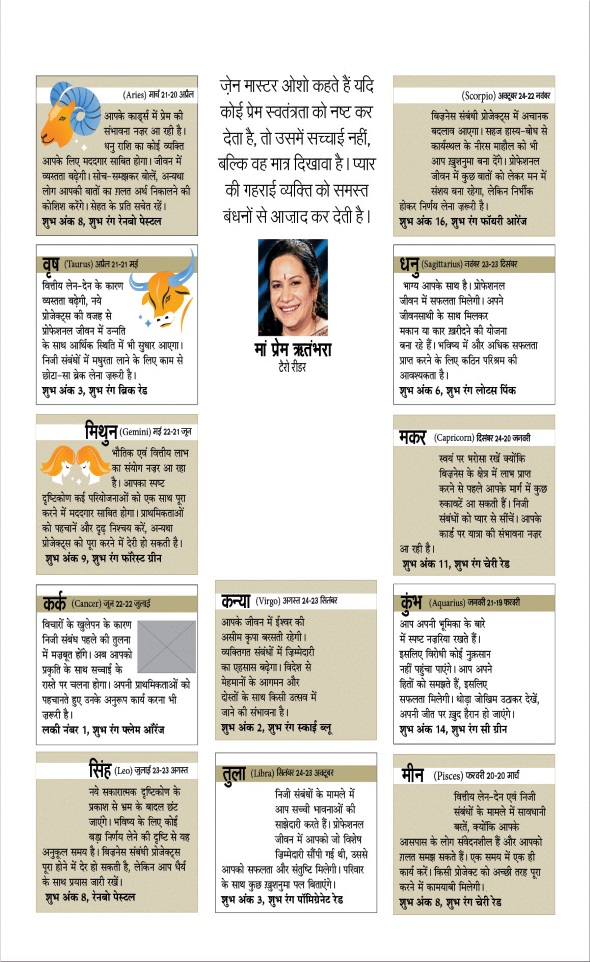 (Aries) मार्च 21-20 अप्रैल
आपके कार्ड्स में प्रेम की
संभावना नज़र आ रही है।
धनु राशि का कोई व्यक्ति
आपके लिए मददगार साबित होगा। जीवन में
व्यस्तता बढ़ेगी। सोच-समझकर बोलें, अन्यथा
लोग आपकी बातों का ग़लत अर्थ निकालने की
कोशिश करेंगे। सेहत के प्रति सचेत रहें।
शुभ अंक 8, शुभ रंग रेनबो पेस्टल
वृष (Taurus) अप्रैल 21-21 मई
वित्तीय लेन-देन के कारण
व्यस्तता बढ़ेगी, नये
प्रोजेक्ट्स की वजह से
प्रोफेशनल जीवन में उन्नति
के साथ आर्थिक स्थिति में भी सुधार आएगा।
निजी संबंधों में मधुरता लाने के लिए काम से
छोटा-सा ब्रेक लेना ज़रूरी है।
शुभ अंक 3, शुभ रंग ब्रिक रेड
मिथुन (Gemini) मई 22-21 जून
भौतिक एवं वित्तीय लाभ
का संयोग नज़र आ रहा
है। आपका स्पष्ट
दृष्टिकोण कई परियोजनाओं को एक साथ पूरा
करने में मददगार साबित होगा। प्राथमिकताओं
को पहचानें और दृढ़ निश्चय करें, अन्यथा
प्रोजेक्ट्स को पूरा करने में देरी हो सकती है।
शुभ अंक 9, शुभ रंग फॉरेस्ट ग्रीन
कर्क (Cancer) जून 22-22 जुलाई
विचारों के खुलेपन के कारण
निजी संबंध पहले की तुलना
में मज़बूत होंगे। अब आपको
प्रकृति के साथ सच्चाई के
रास्ते पर चलना होगा। अपनी प्राथमिकताओं को
पहचानते हुए उनके अनुरूप कार्य करना भी
ज़रूरी है।
लकी नंबर 1, शुभ रंग फ्लेम ऑरेंज
सिंह (Leo) जुलाई 23-23 अगस्त
नये सकारात्मक दृष्टिकोण के
प्रकाश से भ्रम के बादल छंट
जाएंगे। भविष्य के लिए कोई
बड़ा निर्णय लेने की दृष्टि से यह
अनुकूल समय है। बिज़नेस संबंधी प्रोजेक्ट्स
पूरा होने में देर हो सकती है, लेकिन आप धैर्य
के साथ प्रयास जारी रखें।
शुभ अंक 8, रेनबो पेस्टल
ज़ेन मास्टर ओशो कहते हैं यदि
कोई प्रेम स्वतंत्रता को नष्ट कर
देता है, तो उसमें सच्चाई नहीं,
बल्कि वह मात्र दिखावा है। प्यार
की गहराई व्यक्ति को समस्त
बंधनों से आजाद कर देती है।
मां प्रेम ऋतंभरा
टैरो रीडर
कन्या (Virgo) अगस्त 24-23 सितंबर
आपके जीवन में ईश्वर की
असीम कृपा बरसती रहेगी।
व्यक्तिगत संबंधों में ज़िम्मेदारी
का एहसास बढ़ेगा। विदेश से
मेहमानों के आगमन और
दोस्तों के साथ किसी उत्सव में
जाने की संभावना है।
शुभ अंक 2, शुभ रंग स्काई ब्लू
तुला (Libra) सितंबर 24-23 अक्टूबर
निजी संबंधों के मामले में
आप सच्ची भावनाओं की
साझेदारी करते हैं। प्रोफेशनल
जीवन में आपको जो विशेष
ज़िम्मेदारी सौंपी गई थी, उससे
आपको सफलता और संतुष्टि मिलेगी। परिवार
के साथ कुछ ख़ुशनुमा पल बिताएंगे।
शुभ अंक 3, शुभ रंग पॉमिग्रेनेट रेड
(Scorpio) अक्टूबर 24-22 नवंबर
बिज़नेस संबंधी प्रोजेक्ट्स में अचानक
बदलाव आएगा। सहज हास्य-बोध से
कार्यस्थल के नीरस माहौल को भी
आप ख़ुशनुमा बना देंगे। प्रोफेशनल
जीवन में कुछ बातों को लेकर मन में
संशय बना रहेगा, लेकिन निर्भीक
होकर निर्णय लेना ज़रूरी है।
शुभ अंक 16, शुभ रंग फॉयरी आरेंज
धनु (Sagittarius) नवंबर 23-23 दिसंबर
भाग्य आपके साथ है। प्रोफेशनल
जीवन में सफलता मिलेगी। अपने
जीवनसाथी के साथ मिलकर
मकान या कार ख़रीदने की योजना
बना रहे हैं। भविष्य में और अधिक सफलता
प्राप्त करने के लिए कठिन परिश्रम की
आवश्यकता है।
शुभ अंक 6, शुभ रंग लोटस पिंक
मकर (Capricorn) दिसंबर 24-20 जनवरी
स्वयं पर भरोसा रखें क्योंकि
बिज़नेस के क्षेत्र में लाभ प्राप्त
करने से पहले आपके मार्ग में कुछ
रुकावटें आ सकती हैं। निजी
संबंधों को प्यार से सींचें। आपके
कार्ड पर यात्रा की संभावना नज़र
आ रही है।
शुभ अंक 11, शुभ रंग चेरी रेड
कुंभ (Aquarius) जनवरी 21-19 फरवरी
आप अपनी भूमिका के बारे
में स्पष्ट नज़रिया रखते हैं।
इसलिए विरोधी कोई नुक़सान
नहीं पहुंचा पाएंगे। आप अपने
हितों को समझते हैं, इसलिए
सफलता मिलेगी। थोड़ा जोखिम उठाकर देखें,
अपनी जीत पर ख़ुद हैरान हो जाएंगे।
शुभ अंक 14, शुभ रंग सी ग्रीन
मीन (Pisces) फरवरी 20-20 मार्च
वित्तीय लेन-देन एवं निजी
संबंधों के मामले में सावधानी
बरतें, क्योंकि आपके
आसपास के लोग संवेदनशील हैं और आपको
ग़लत समझ सकते हैं। एक समय में एक ही
कार्य करें। किसी प्रोजेक्ट को अच्छी तरह पूरा
करने में कामयाबी मिलेगी।
शुभ अंक 8, शुभ रंग चेरी रेड